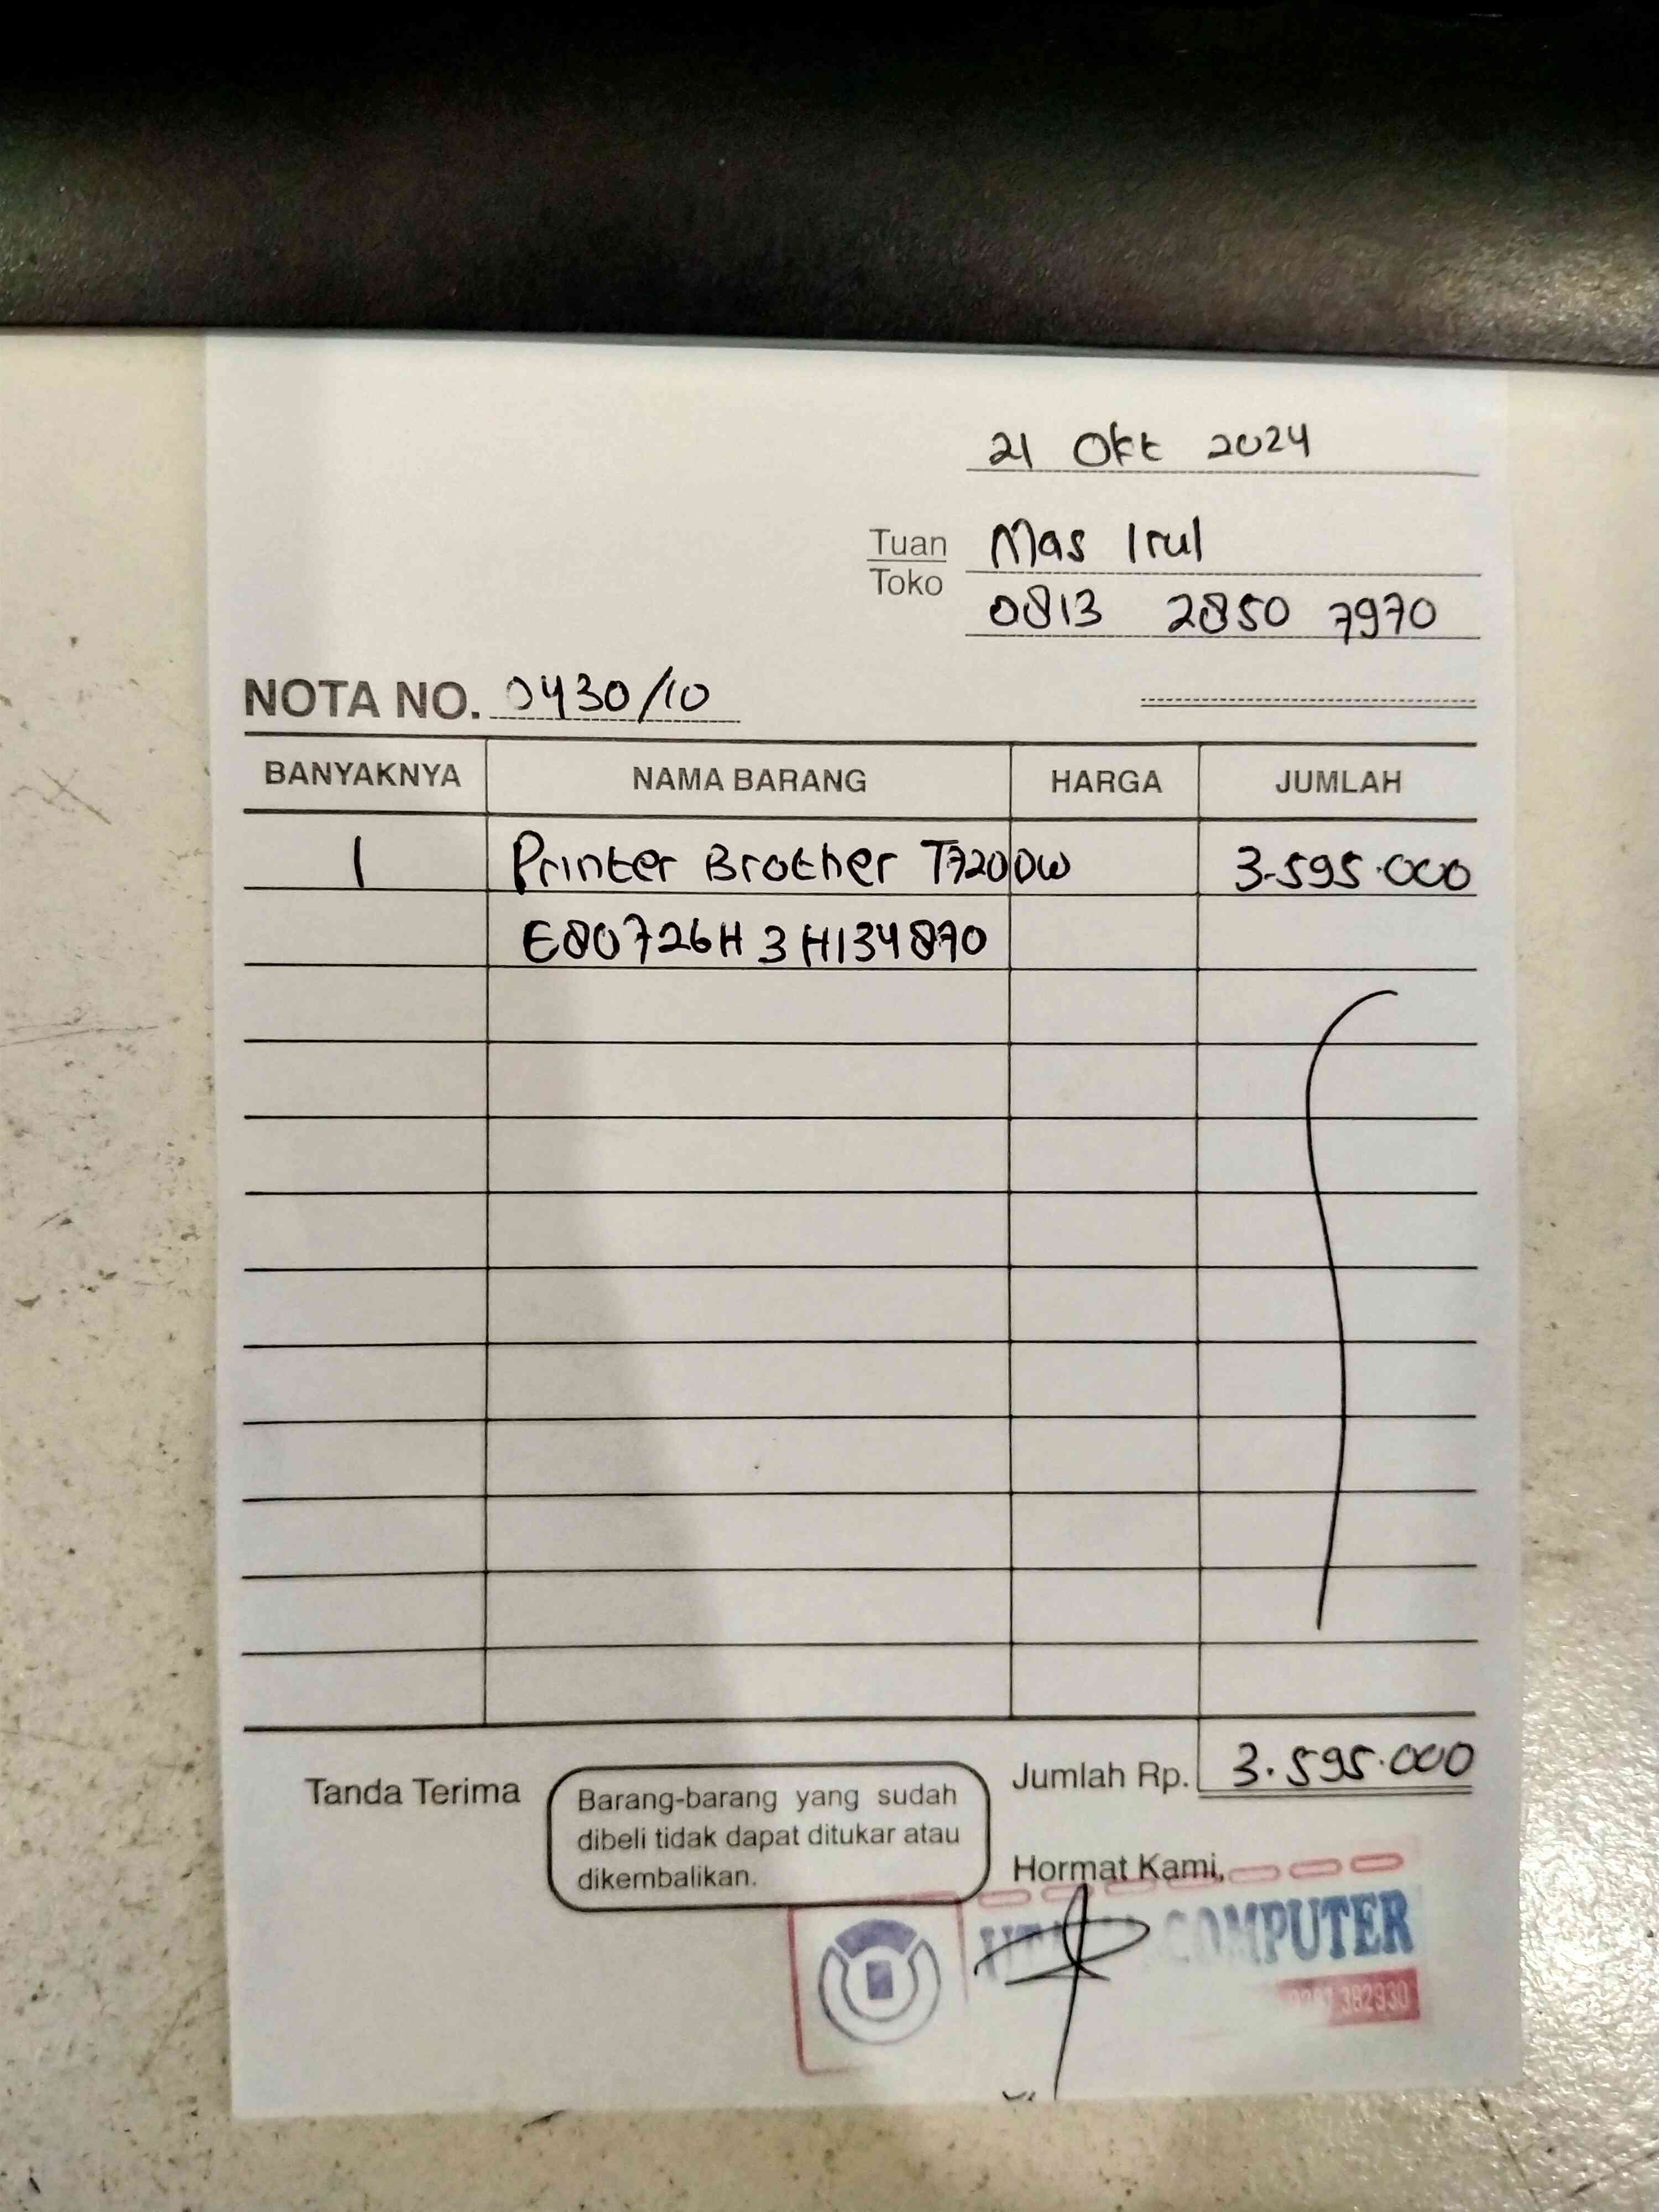 21 Okt 2024
Tuan Mas Irul
Toko
0813 2850 7970
NOTA NO. 0430/10
BANYAKNYA NAMA BARANG HARGA JUMLAH
1 Printer Brother T720DW 3.595.000
E80726H3H134870
Jumlah Rp. 3.595.000
Tanda Terima
Barang-barang yang sudah
dibeli tidak dapat ditukar atau
dikembalikan.
Hormat Kami,
COMPUTER
382930